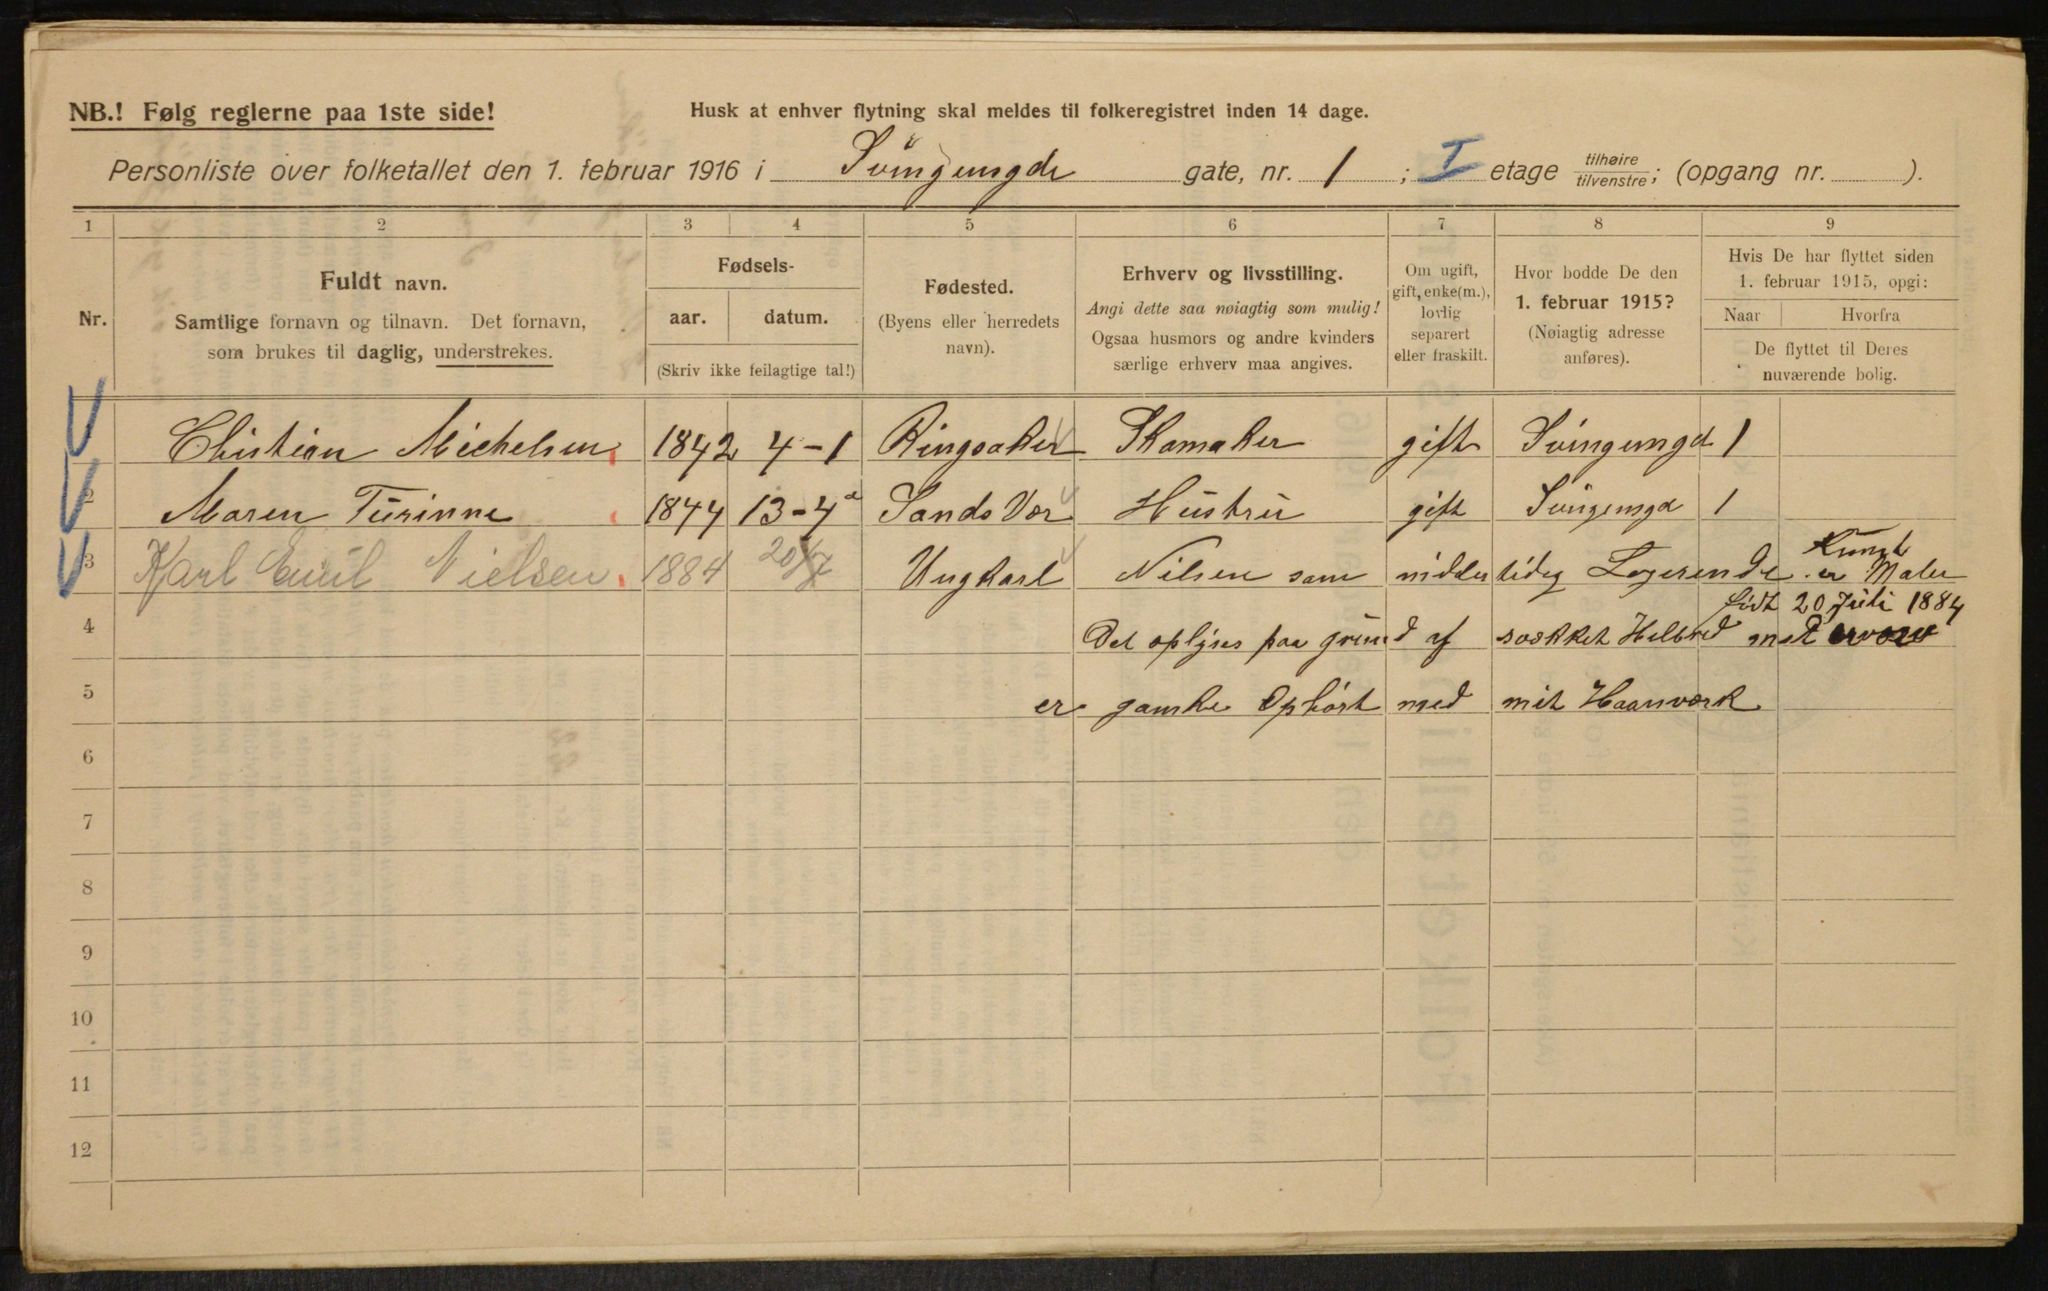 NB.! Følg reglerne paa 1ste side!
Husk at enhver flytning skal meldes til folkeregistret inden 14 dage.
Personliste over folketallet den 1. februar 1916 i Svingengde gate, nr. 1 ; I etage tilhøire tilvenstre; (opgang nr. ).
1 2 3 4 5 6 7 8 9
Nr.
Fuldt navn.
Samtlige fornavn og tilnavn. Det fornavn,
som brukes til daglig, understrekes.
Fødsels-
aar. datum.
(Skriv ikke feilagtige tal!)
Fødested.
(Byens eller herredets
navn).
Erhverv og livsstilling.
Angi dette saa nøiagtig som mulig!
Ogsaa husmors og andre kvinders
særlige erhverv maa angives.
Om ugift,
gift, enke(m.),
lovlig
separert
eller fraskilt.
Hvor bodde De den
1. februar 1915?
(Nøiagtig adresse
anføres).
Hvis De har flyttet siden
1. februar 1915, opgi:
Naar Hvorfra
De flyttet til Deres
nuværende bolig.
Christian Michelsen 1842 4-1 Ringsaker Skomaker gift Svingengd 1
2 Maren Turinne 1844 13-4 Sands Vær Hustru gift Svingengd 1
3 Karl Emil Nielsen 1884 20/7 Ungkarl Nilsen som middertideg Logerende er Kunst Maler
født 20 Juli 1884
4 Det oplyses paa grund af svækket Helbred
5 er ganske Ophørt med mit Haanværk
6
7
8
9
10
11
12